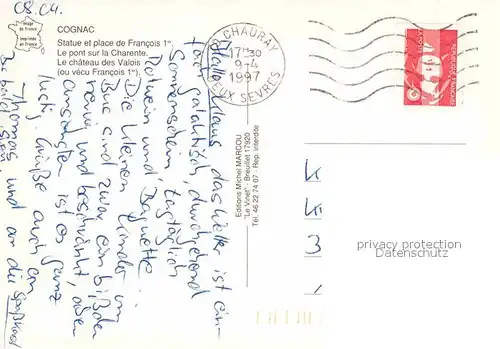 08.04.
Image de France
Imprimée en France
COGNAC
Statue et place de François 1er.
Le pont sur la Charente.
Le château des Valois
(où vécu François 1er).
CHAURAY
17H30
9-4
1997
DEUX SEVRES
RÉPUBLIQUE FRANÇAISE
Hallo Klaus, das Wetter ist ein-
fach galaktisch, durchgehend
Sonnenschein, tagtäglich
Rotwein und Baguette.
Die kleinen Kinder im
Bus sind zwar ein bißchen
nervig und beschränkt, aber
ansonsten ist es ganz
lustig. Grüße auch an
Thomas und an die
Bis bald
Editions Michel MARCOU
"Le Vinet" - Breuillet 17920
Tél. 46 22 74 07 - Rep. interdite
privacy protection
Datenschutz